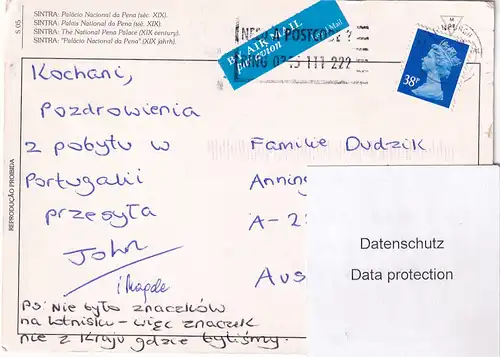 SINTRA: Palácio Nacional da Pena (séc. XIX).
SINTRA: Palais National da Pena (siè. XIX).
SINTRA: The National Pena Palace (XIX century).
SINTRA: "Palácio Nacional da Pena" (XIX jahrh).
S 05
REPRODUÇÃO PROIBIDA
BY AIR MAIL
par avion
A POSTCODE ?
RING 0345 111 222
38P
Kochani,
Pozdrowienia
z pobytu w
Portugalii
przesyła
John
i Magda
PS: Nie było znaczków
na lotnisku - więc znaczek
nie z kraju gdzie byliśmy.
Familie Dudzik
Anning
A-2
Aus
Datenschutz
Data protection